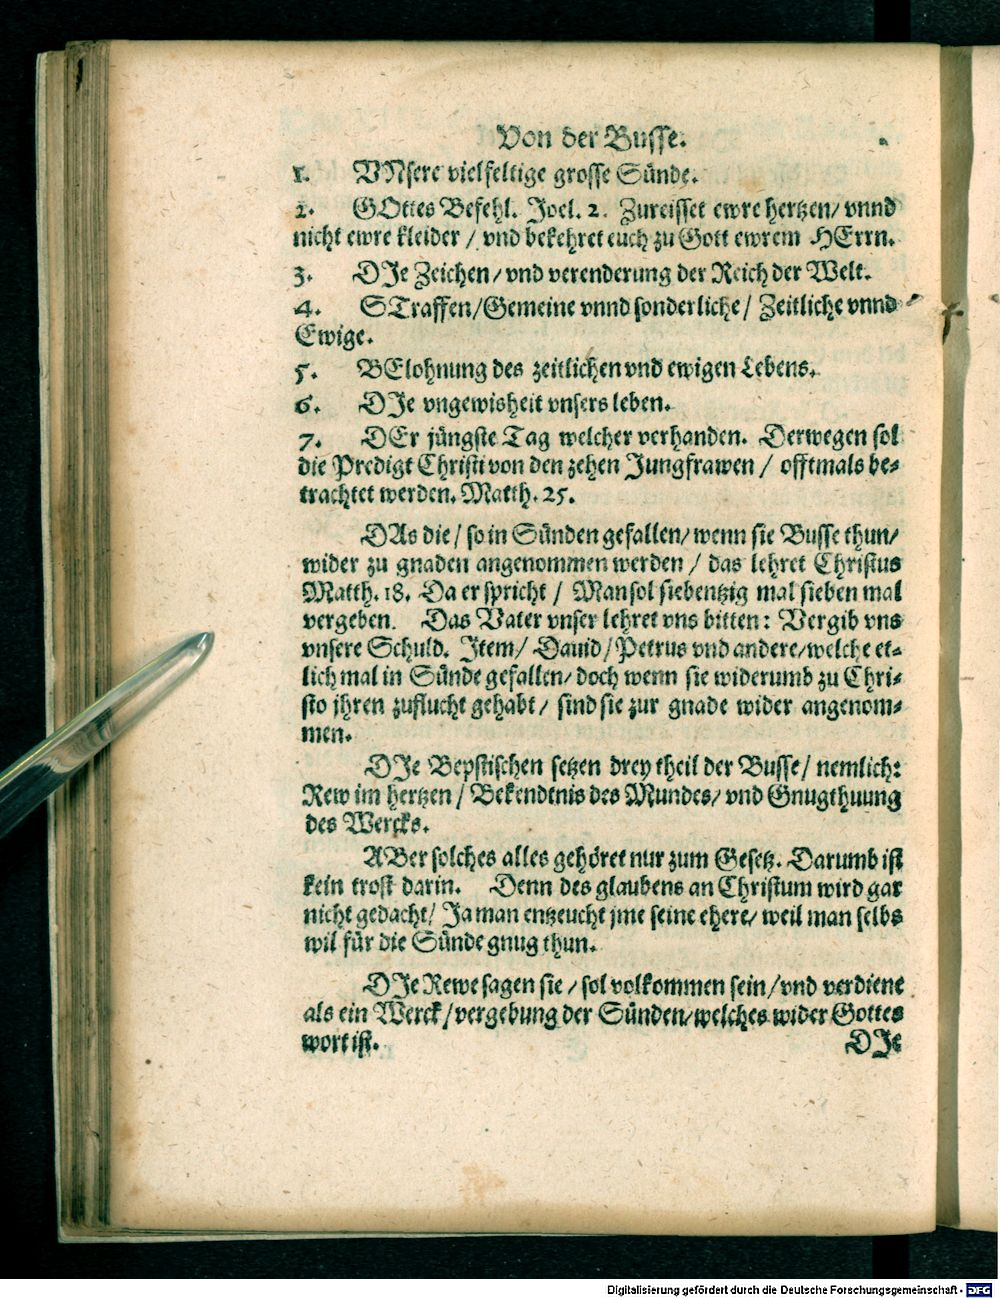 Von der Busse.
1. VNsere vielfeltige grosse Sünde.
2. GOttes Befehl. Joel. 2. Zureisset ewre hertzen/ vnnd
nicht ewre kleider / vnd bekehret euch zu Gott ewrem HErrn.
3. DJe Zeichen/ vnd verenderung der Reich der Welt.
4. STraffen/Gemeine vnnd sonderliche/ Zeitliche vnnd
Ewige.
5. BElohnung des zeitlichen vnd ewigen Lebens.
6. DJe vngewisheit vnsers leben.
7. DEr jüngste Tag welcher verhanden. Derwegen sol
die Predigt Christi von den zehen Jungfrawen / offtmals be-
trachtet werden. Matth. 25.
DAs die/ so in Sünden gefallen/ wenn sie Busse thun/
wider zu gnaden angenommen werden / das lehret Christus
Matth. 18. Da er spricht / Man sol siebentzig mal sieben mal
vergeben. Das Vater vnser lehret vns bitten: Vergib vns
vnsere Schuld. Jtem/ Dauid/ Petrus vnd andere/ welche et-
lich mal in Sünde gefallen/ doch wenn sie widerumb zu Chri-
sto jhren zuflucht gehabt / sind sie zur gnade wider angenom-
men.
DJe Bepstischen setzen drey theil der Busse/ nemlich:
Rew im hertzen / Bekendtnis des Mundes/ vnd Gnugthuung
des Wercks.
ABer solches alles gehöret nur zum Gesetz. Darumb ist
kein trost darin. Denn des glaubens an Christum wird gar
nicht gedacht/ Ja man entzeucht jme seine ehere/ weil man selbs
wil für die Sünde gnug thun.
DJe Rewe sagen sie / sol volkommen sein/ vnd verdiene
als ein Werck/ vergebung der Sünden/ welches wider Gottes
wort ist. DJe
Digitalisierung gefördert durch die Deutsche Forschungsgemeinschaft - DFG